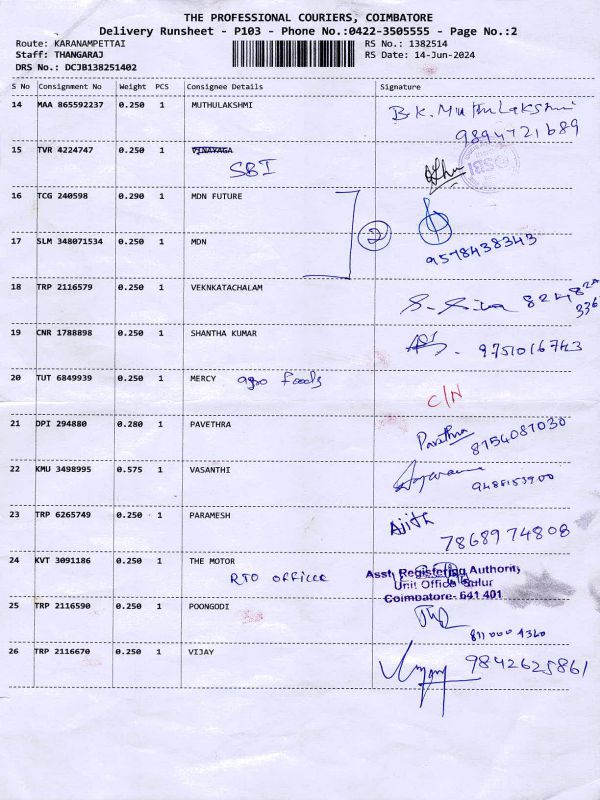 THE PROFESSIONAL COURIERS, COIMBATORE
Delivery Runsheet - P103 - Phone No.:0422-3505555 - Page No.:2
Route: KARANAMPETTAI RS No.: 1382514
Staff: THANGARAJ RS Date: 14-Jun-2024
DRS No.: DCJB138251402
S No Consignment No Weight PCS Consignee Details Signature
14 MAA 865592237 0.250 1 MUTHULAKSHMI B.K. Muthulakshmi
9894721689
15 TVR 4224747 0.250 1 VINAYAGA
SBI
SBI
16 TCG 240598 0.290 1 MDN FUTURE
2
17 SLM 348071534 0.250 1 MDN 9578438343
18 TRP 2116579 0.250 1 VEKNKATACHALAM
19 CNR 1788898 0.250 1 SHANTHA KUMAR 9751016743
20 TUT 6849939 0.250 1 MERCY agro foods
C/N
21 DPI 294880 0.280 1 PAVETHRA Pavethra 8154087030
22 KMU 3498995 0.575 1 VASANTHI
9488153900
23 TRP 6265749 0.250 1 PARAMESH Ajith
7868974808
24 KVT 3091186 0.250 1 THE MOTOR
RTO officee
Asst. Registering Authority
Unit Office Sulur
Coimbatore- 641 401
25 TRP 2116590 0.250 1 POONGODI
26 TRP 2116670 0.250 1 VIJAY Vijay 9842625861